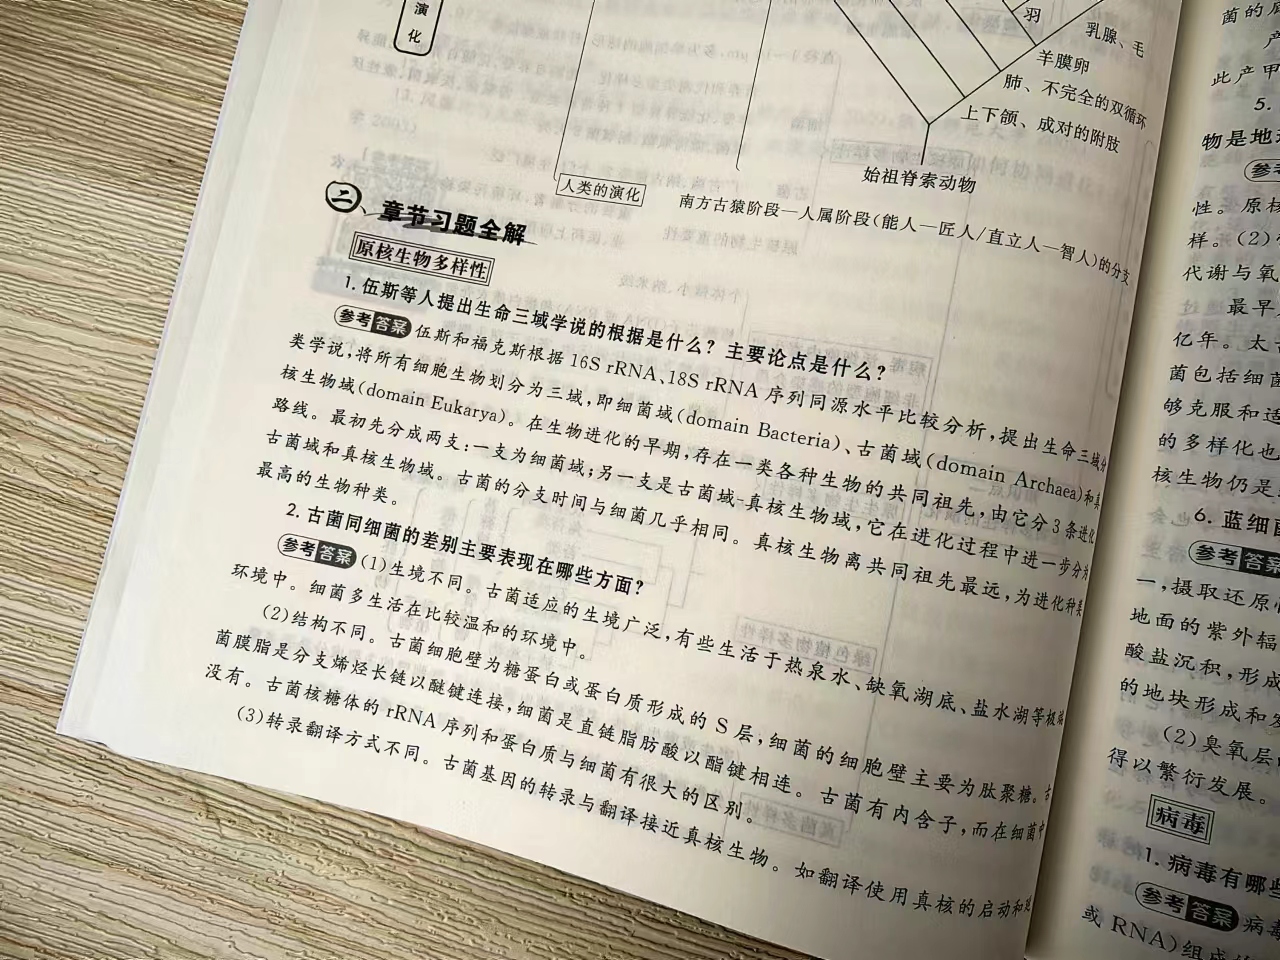 演
化
羽
乳腺、毛
羊膜卵
肺、不完全的双循环
上下颌、成对的附肢
始祖脊索动物
人类的演化
南方古猿阶段—人属阶段(能人—匠人/直立人—智人)的分支
二、章节习题全解
原核生物多样性
1. 伍斯等人提出生命三域学说的根据是什么？主要论点是什么？
参考答案 伍斯和福克斯根据 16S rRNA、18S rRNA 序列同源水平比较分析，提出生命三域分
类学说，将所有细胞生物划分为三域，即细菌域(domain Bacteria)、古菌域(domain Archaea)和真
核生物域(domain Eukarya)。在生物进化的早期，存在一类各种生物的共同祖先，由它分 3 条进化
路线。最初先分成两支：一支为细菌域；另一支是古菌域-真核生物域，它在进化过程中进一步分为
古菌域和真核生物域。古菌的分支时间与细菌几乎相同。真核生物离共同祖先最远，为进化种类
最高的生物种类。
2. 古菌同细菌的差别主要表现在哪些方面？
参考答案 (1)生境不同。古菌适应的生境广泛，有些生活于热泉水、缺氧湖底、盐水湖等极端
环境中。细菌多生活在比较温和的环境中。
(2)结构不同。古菌细胞壁为糖蛋白或蛋白质形成的 S 层，细菌的细胞壁主要为肽聚糖。古
菌膜脂是分支烯烃长链以醚键连接，细菌是直链脂肪酸以酯键相连。古菌有内含子，而在细菌中
没有。古菌核糖体的 rRNA 序列和蛋白质与细菌有很大的区别。
(3)转录翻译方式不同。古菌基因的转录与翻译接近真核生物。如翻译使用真核的启动和延
菌的
产
此产甲
5.
物是地
参考
性。原核
样。(2)
代谢与氧
最早
亿年。太古
菌包括细菌
够克服和适
的多样化也
核生物仍是
6. 蓝细菌
参考答案
一，摄取还原
地面的紫外辐
酸盐沉积，形成
的地块形成和发
(2)臭氧层
得以繁衍发展。
病毒
1. 病毒有哪些
参考答案 病毒
或 RNA)组成